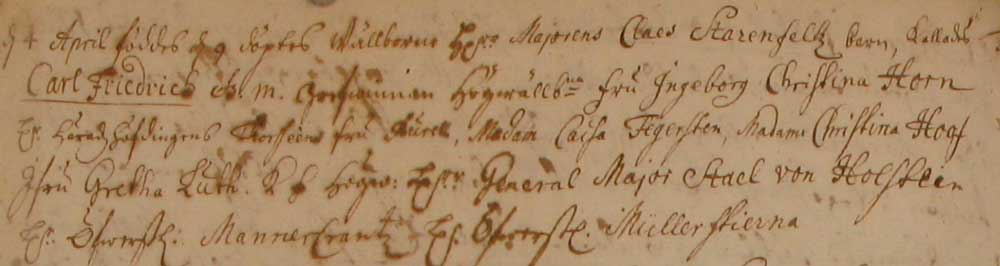 d 4 April föddes d 9 döptes Wällborne H:rr Majorens Claes Starenfeltz barn, kallades
Carl Friedrich Ch. m. Högwällb:na fru Ingeborg Christina Horn
H:r Häradzhöfdingens fru, Madam Cajsa Tegersten, Madame Christina Hoof
Jfru Gretha Luth. K f Högw: H:rr General Major Stael von Holsteen
H:r Öfwerstl: Mannercrantz H:r Öfwerstl: Müllerstierna